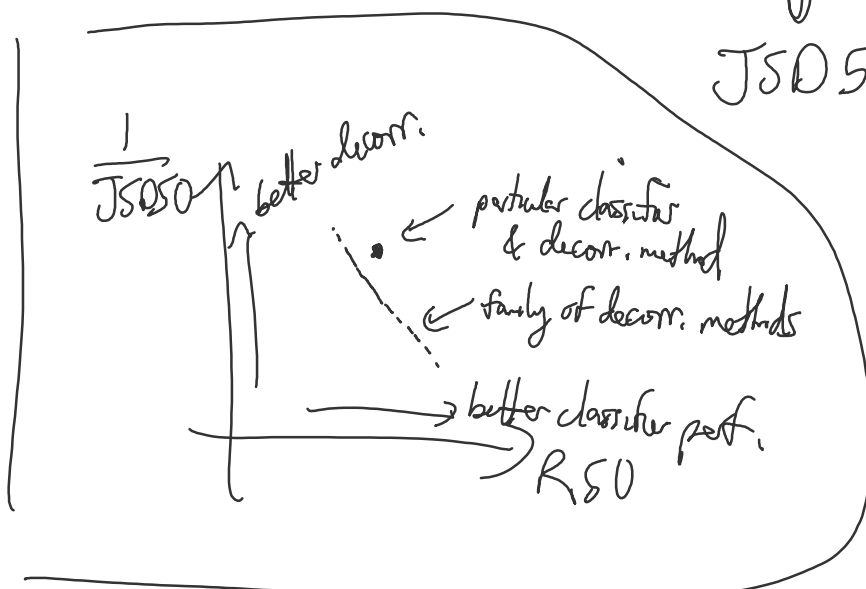 JSD5
1
JSD50
better decorr.
particular classifier
& decorr. method
family of decorr. methods
better classifier perf.
R50